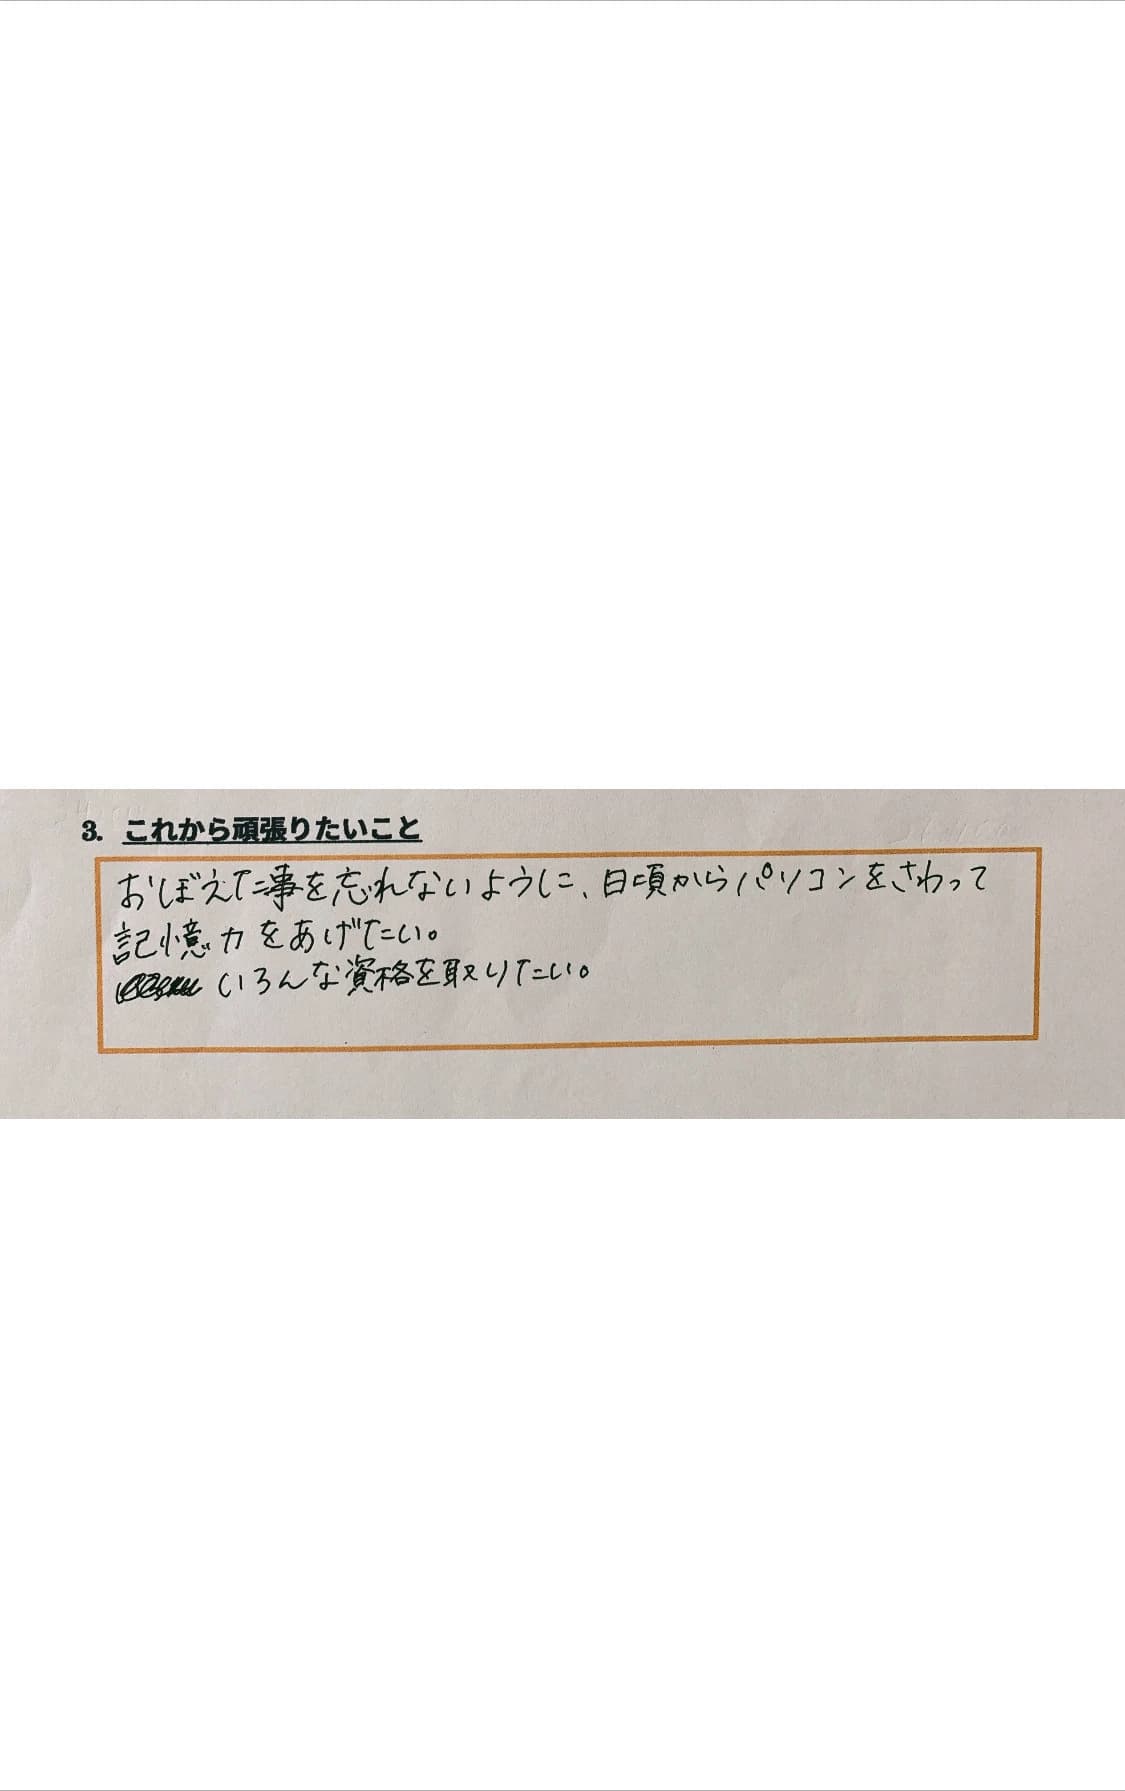 3. これから頑張りたいこと
おぼえた事を忘れないように、日頃からパソコンをさわって
記憶力をあげたい。
いろんな資格を取りたい。